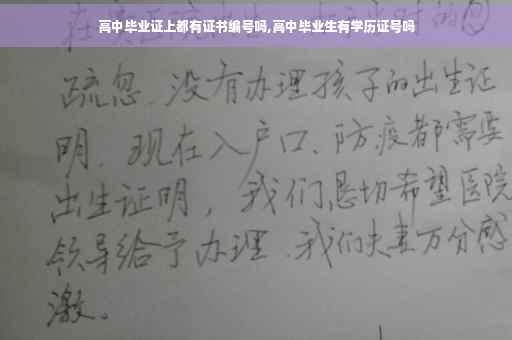 高中毕业证上都有证书编号吗,高中毕业生有学历证号吗
疏忽、没有办理孩子的出生证
明、现在入户口、防疫都需要
出生证明，我们恳切希望医院
领导给予办理、我们夫妻万分感
激。